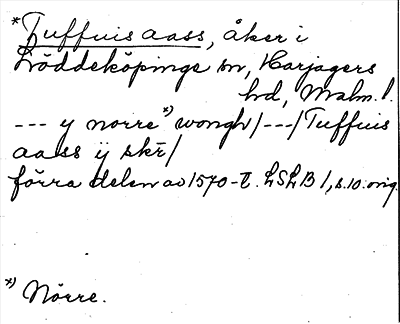 *Tuffuis aass, åker i
Löddeköpinge sn, Harjagers
hd, Malm. l.
--- y norre *) wongh/---/Tuffuis
aass ij skr̄/
förra delen av 1570-t. LSLB 1, s.10. orig.
*) Nörre.